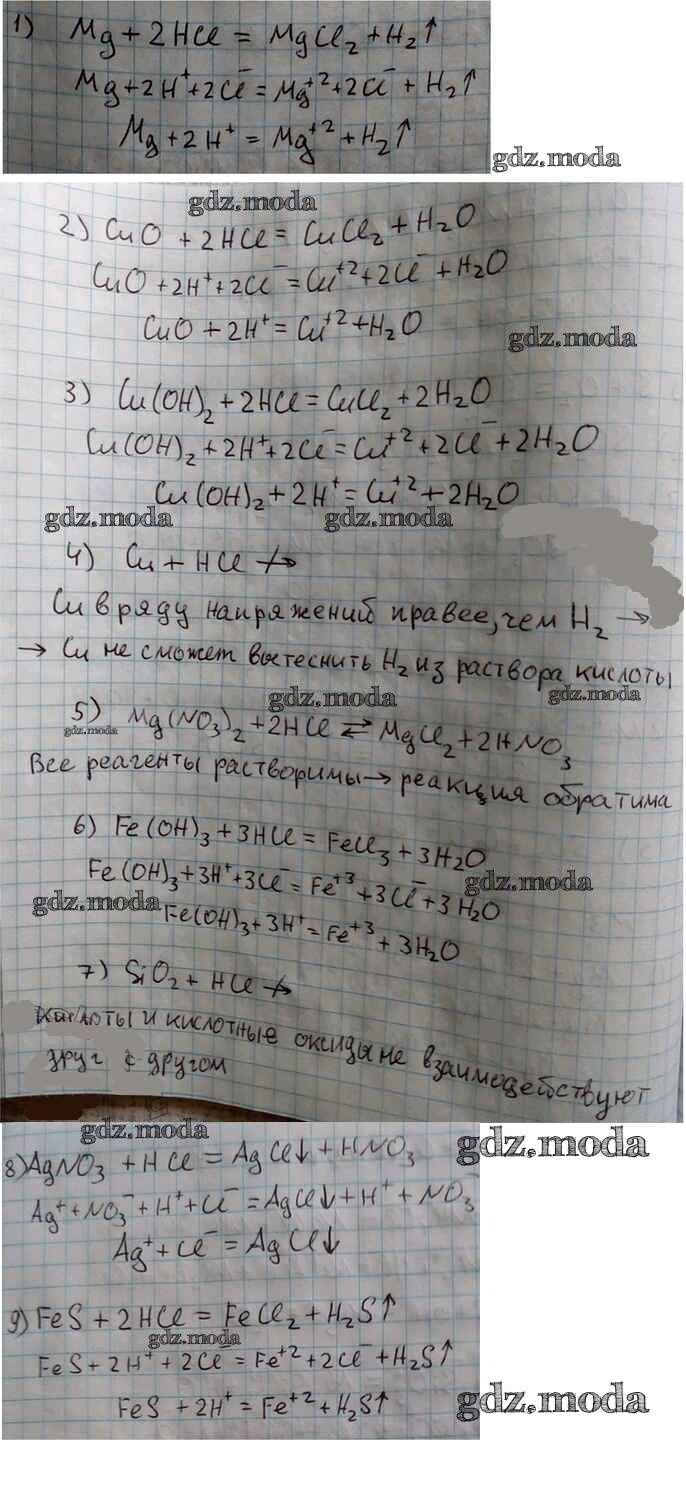 1) Mg + 2HCl = MgCl₂ + H₂↑
Mg + 2H⁺ + 2Cl⁻ = Mg⁺² + 2Cl⁻ + H₂↑
Mg + 2H⁺ = Mg⁺² + H₂↑
gdz.moda
gdz.moda
2) CuO + 2HCl = CuCl₂ + H₂O
CuO + 2H⁺ + 2Cl⁻ = Cu⁺² + 2Cl⁻ + H₂O
CuO + 2H⁺ = Cu⁺² + H₂O
gdz.moda
3) Cu(OH)₂ + 2HCl = CuCl₂ + 2H₂O
Cu(OH)₂ + 2H⁺ + 2Cl⁻ = Cu⁺² + 2Cl⁻ + 2H₂O
Cu(OH)₂ + 2H⁺ = Cu⁺² + 2H₂O
gdz.moda gdz.moda
4) Cu + HCl ↛
Cu в ряду напряжений правее, чем H₂ →
→ Cu не сможет вытеснить H₂ из раствора кислоты
gdz.moda gdz.moda
5) Mg(NO₃)₂ + 2HCl ⇄ MgCl₂ + 2HNO₃
gdz.moda
Все реагенты растворимы → реакция обратима
6) Fe(OH)₃ + 3HCl = FeCl₃ + 3H₂O
Fe(OH)₃ + 3H⁺ + 3Cl⁻ = Fe⁺³ + 3Cl⁻ + 3H₂O
gdz.moda gdz.moda
Fe(OH)₃ + 3H⁺ = Fe⁺³ + 3H₂O
7) SiO₂ + HCl ↛
Кислоты и кислотные оксиды не взаимодействуют
друг с другом
gdz.moda gdz.moda
8) AgNO₃ + HCl = AgCl↓ + HNO₃
Ag⁺ + NO₃⁻ + H⁺ + Cl⁻ = AgCl↓ + H⁺ + NO₃⁻
Ag⁺ + Cl⁻ = AgCl↓
9) FeS + 2HCl = FeCl₂ + H₂S↑
gdz.moda
FeS + 2H⁺ + 2Cl⁻ = Fe⁺² + 2Cl⁻ + H₂S↑
FeS + 2H⁺ = Fe⁺² + H₂S↑
gdz.moda